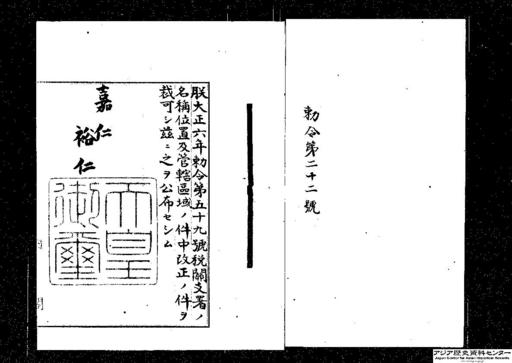 勅令第二十二號
朕大正六年勅令第五十九號税關支署ノ
名稱位置及管轄區域ノ件中改正ノ件ヲ
裁可シ茲ニ之ヲ公布セシム
嘉仁
裕仁
天皇
御璽
アジア歴史資料センター
Japan Center for Asian Historical Records